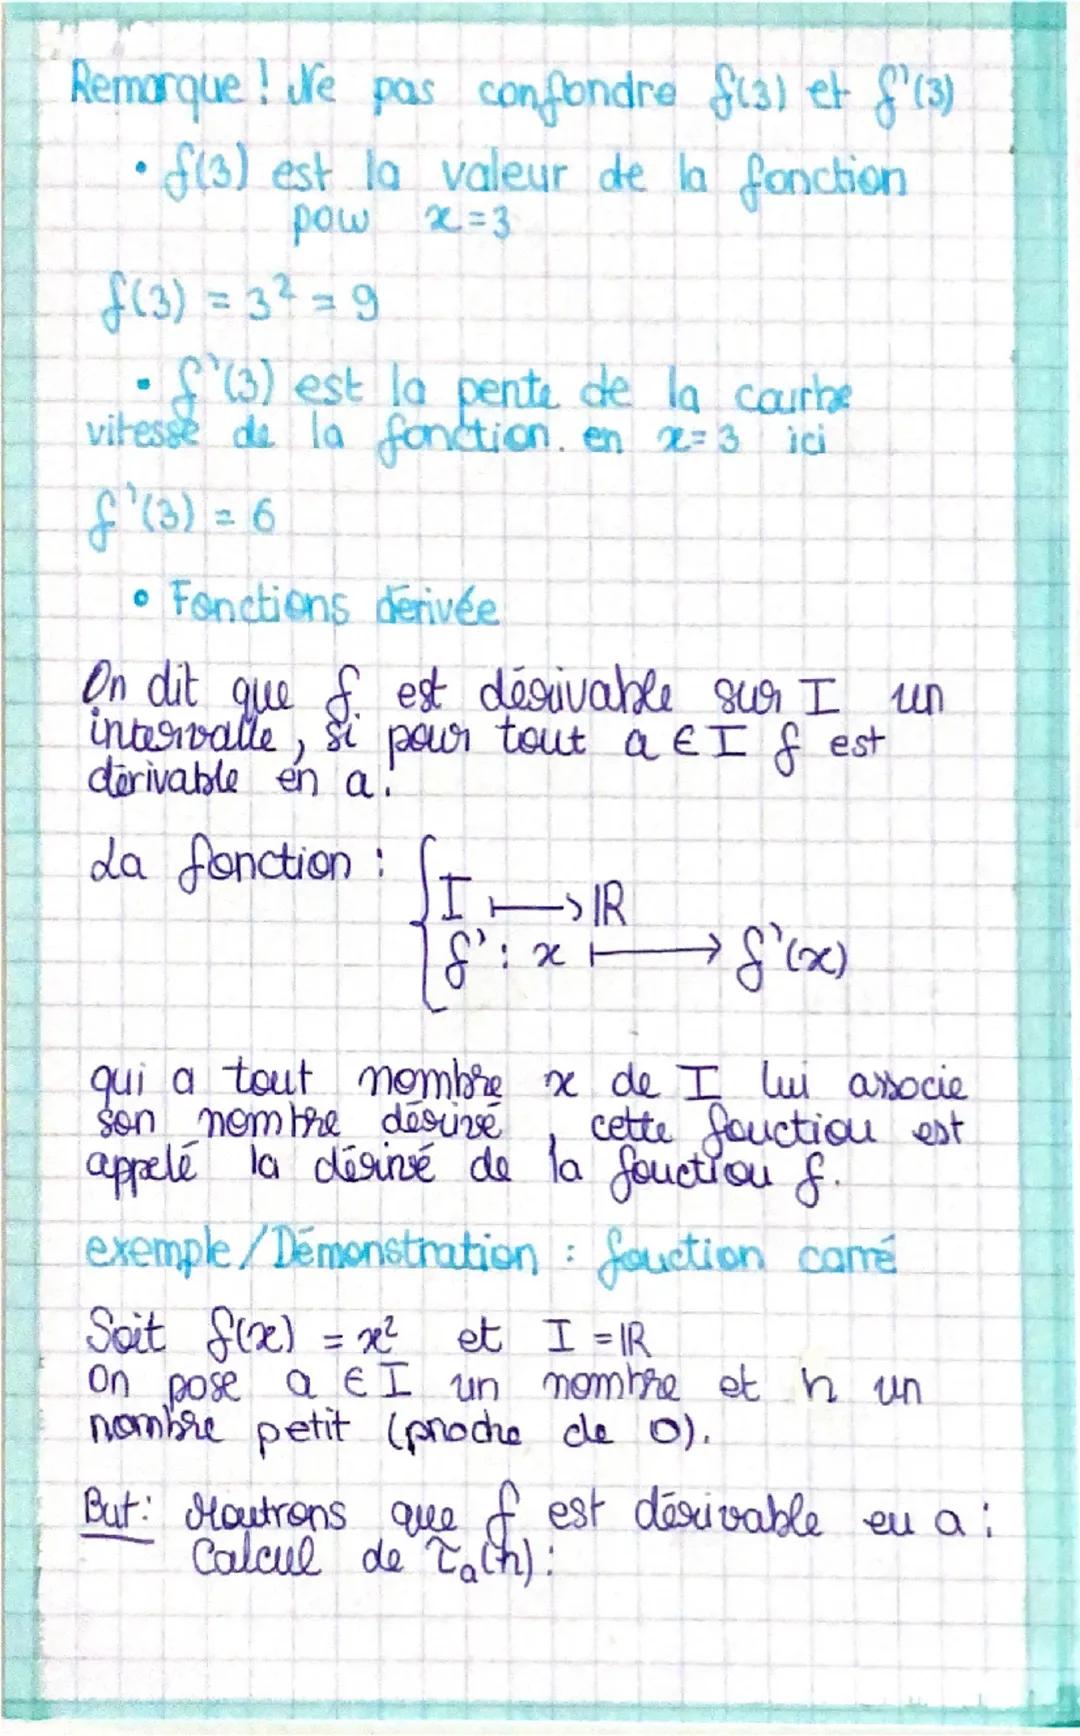 Remarque ! Ne pas confondre f(3) et f'(3)
• f(3) est la valeur de la fonction
pour x=3
f(3) = 3² = 9
• f'(3) est la pente de la courbe
vitesse de la fonction. en x=3 ici
f'(3) = 6
• Fonctions dérivée
On dit que f est dérivable sur I un
intervalle, si pour tout a ∈ I f est
dérivable en a.
La fonction : { I ⟼ IR
f' : x ⟼ f'(x)
qui a tout nombre x de I lui associe
son nombre dérivé, cette fonction est
appelé la dérivé de la fonction f.
exemple/Démonstration : fonction carré
Soit f(x) = x² et I = IR
On pose a ∈ I un nombre et h un
nombre petit (proche de 0).
But : Montrons que f est dérivable en a :
Calcul de τₐ(h) :